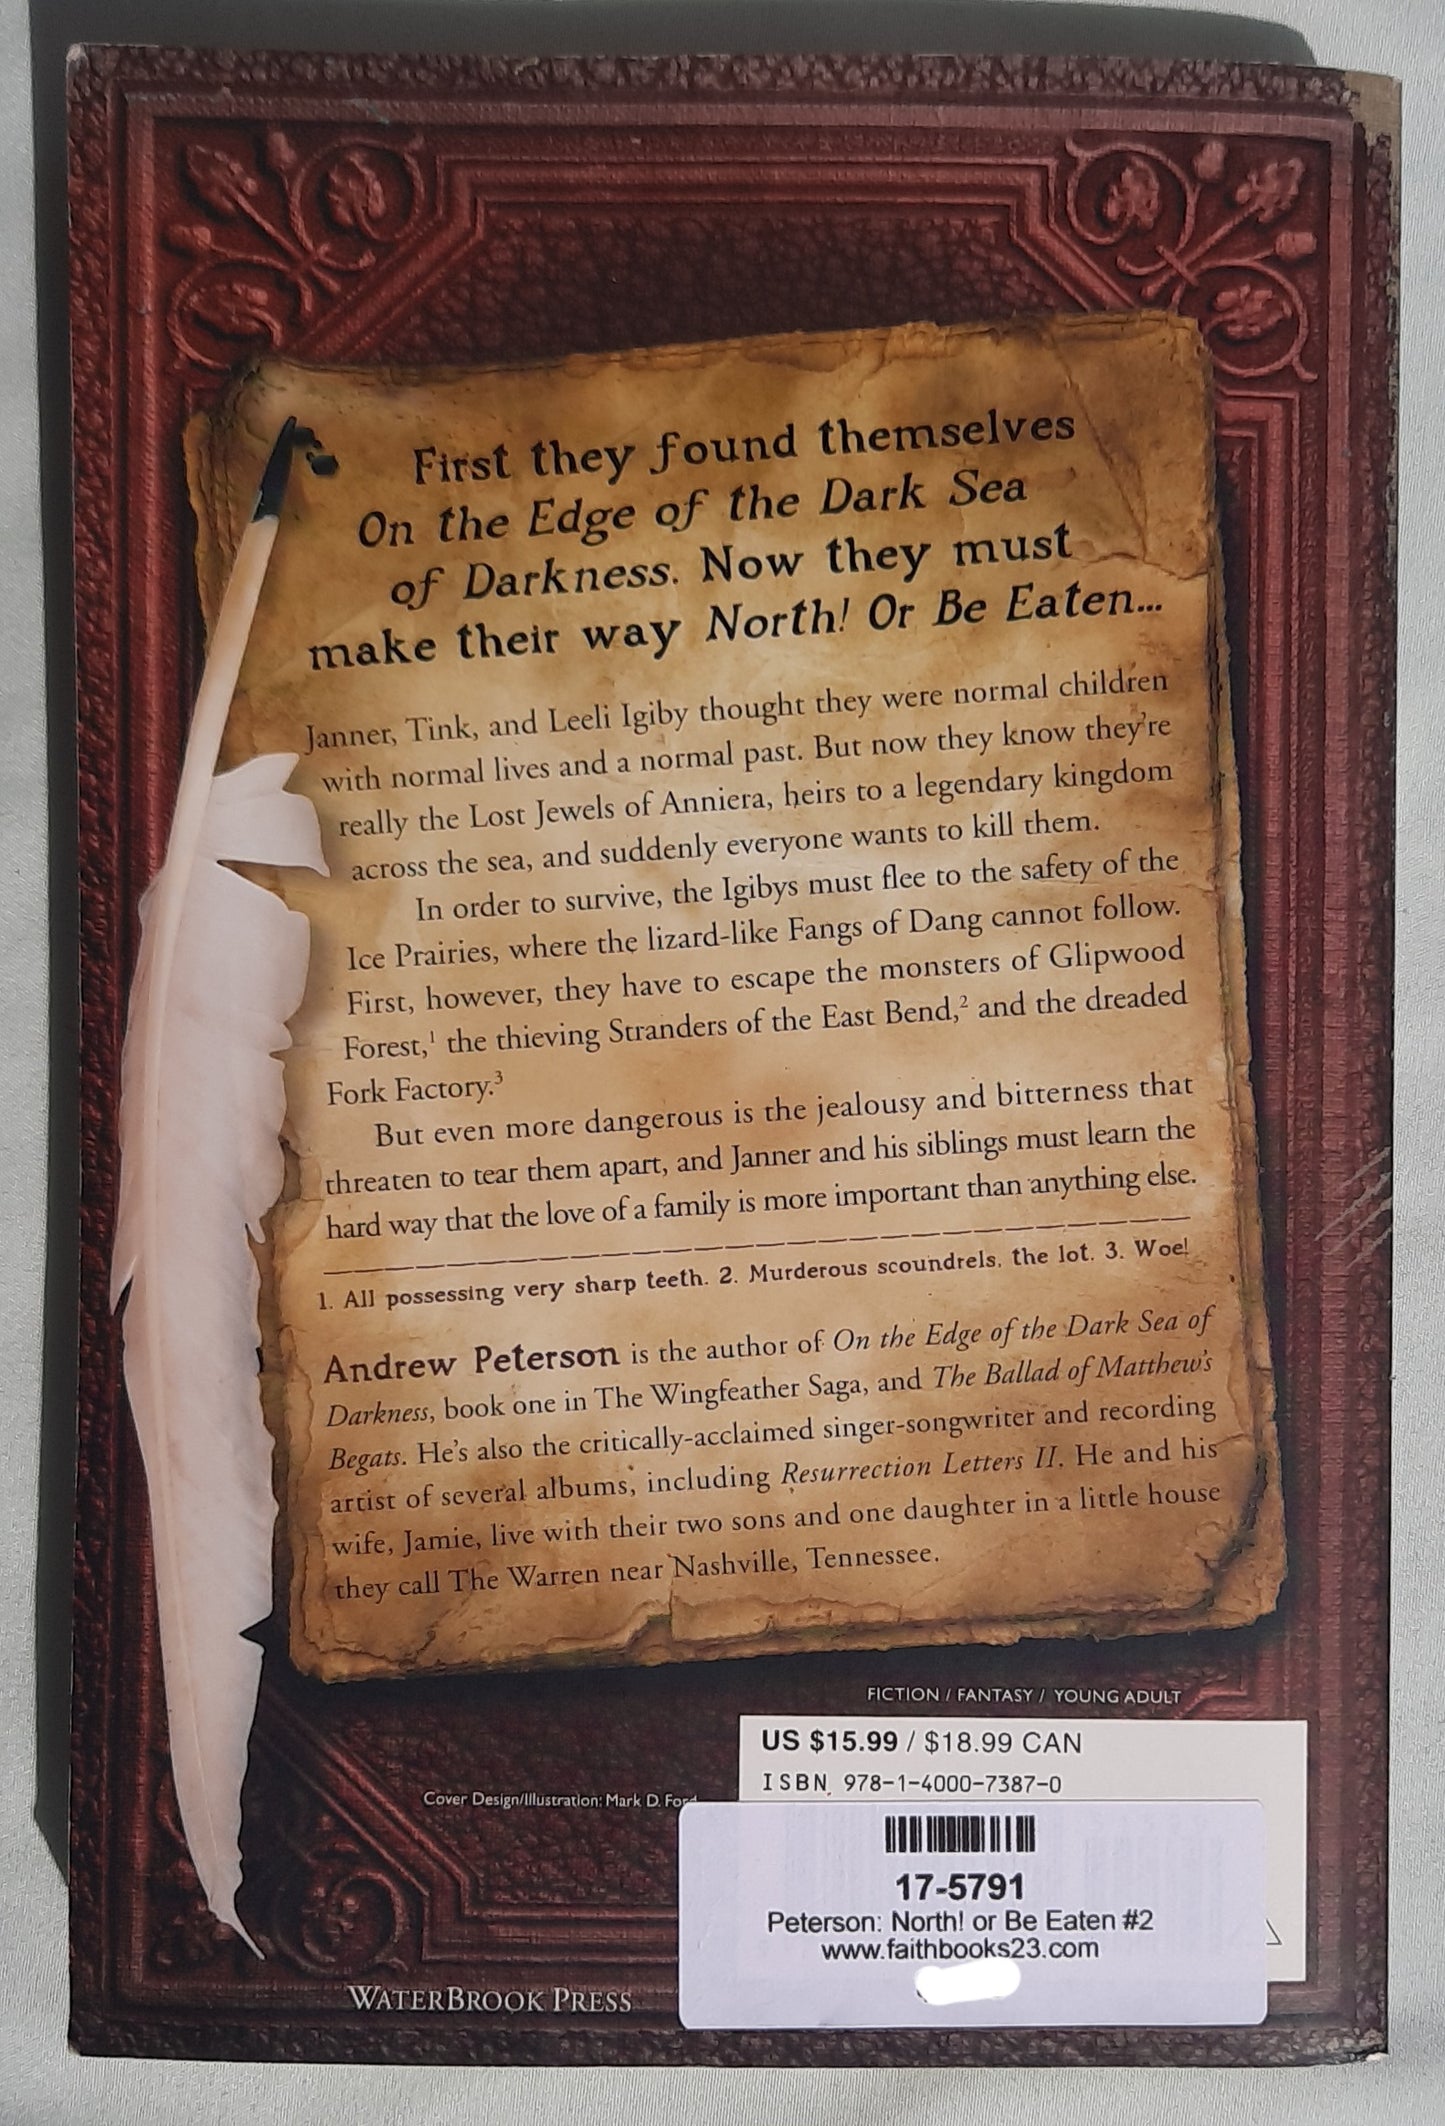 First they found themselves
On the Edge of the Dark Sea
of Darkness. Now they must
make their way North! Or Be Eaten...
Janner, Tink, and Leeli Igiby thought they were normal children
with normal lives and a normal past. But now they know they're
really the Lost Jewels of Anniera, heirs to a legendary kingdom
across the sea, and suddenly everyone wants to kill them.
In order to survive, the Igibys must flee to the safety of the
Ice Prairies, where the lizard-like Fangs of Dang cannot follow.
First, however, they have to escape the monsters of Glipwood
Forest,¹ the thieving Stranders of the East Bend,² and the dreaded
Fork Factory.³
But even more dangerous is the jealousy and bitterness that
threaten to tear them apart, and Janner and his siblings must learn the
hard way that the love of a family is more important than anything else.
1. All possessing very sharp teeth. 2. Murderous scoundrels, the lot. 3. Woe!
Andrew Peterson is the author of On the Edge of the Dark Sea of
Darkness, book one in The Wingfeather Saga, and The Ballad of Matthew's
Begats. He's also the critically-acclaimed singer-songwriter and recording
artist of several albums, including Resurrection Letters II. He and his
wife, Jamie, live with their two sons and one daughter in a little house
they call The Warren near Nashville, Tennessee.
FICTION / FANTASY / YOUNG ADULT
US $15.99 / $18.99 CAN
ISBN 978-1-4000-7387-0
Cover Design/Illustration: Mark D. Ford
17-5791
Peterson: North! or Be Eaten #2
www.faithbooks23.com
WATERBROOK PRESS